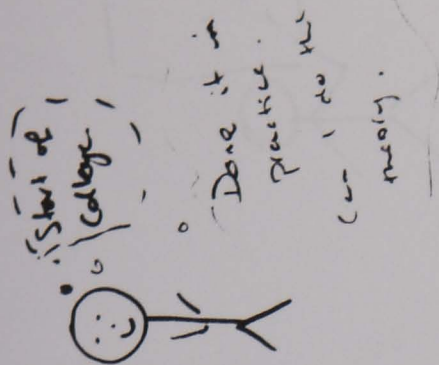 Start of
College
Done it in
practice.
Can I do the
theory.